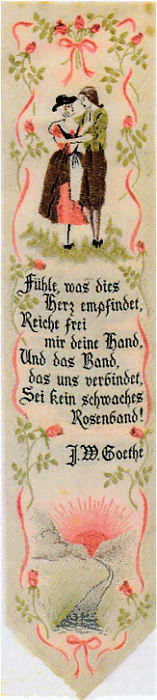 Fühle, was dies
Herz empfindet,
Reiche frei
mir deine Hand,
Und das Band,
das uns verbindet,
Sei kein schwaches
Rosenband!
J.W. Goethe